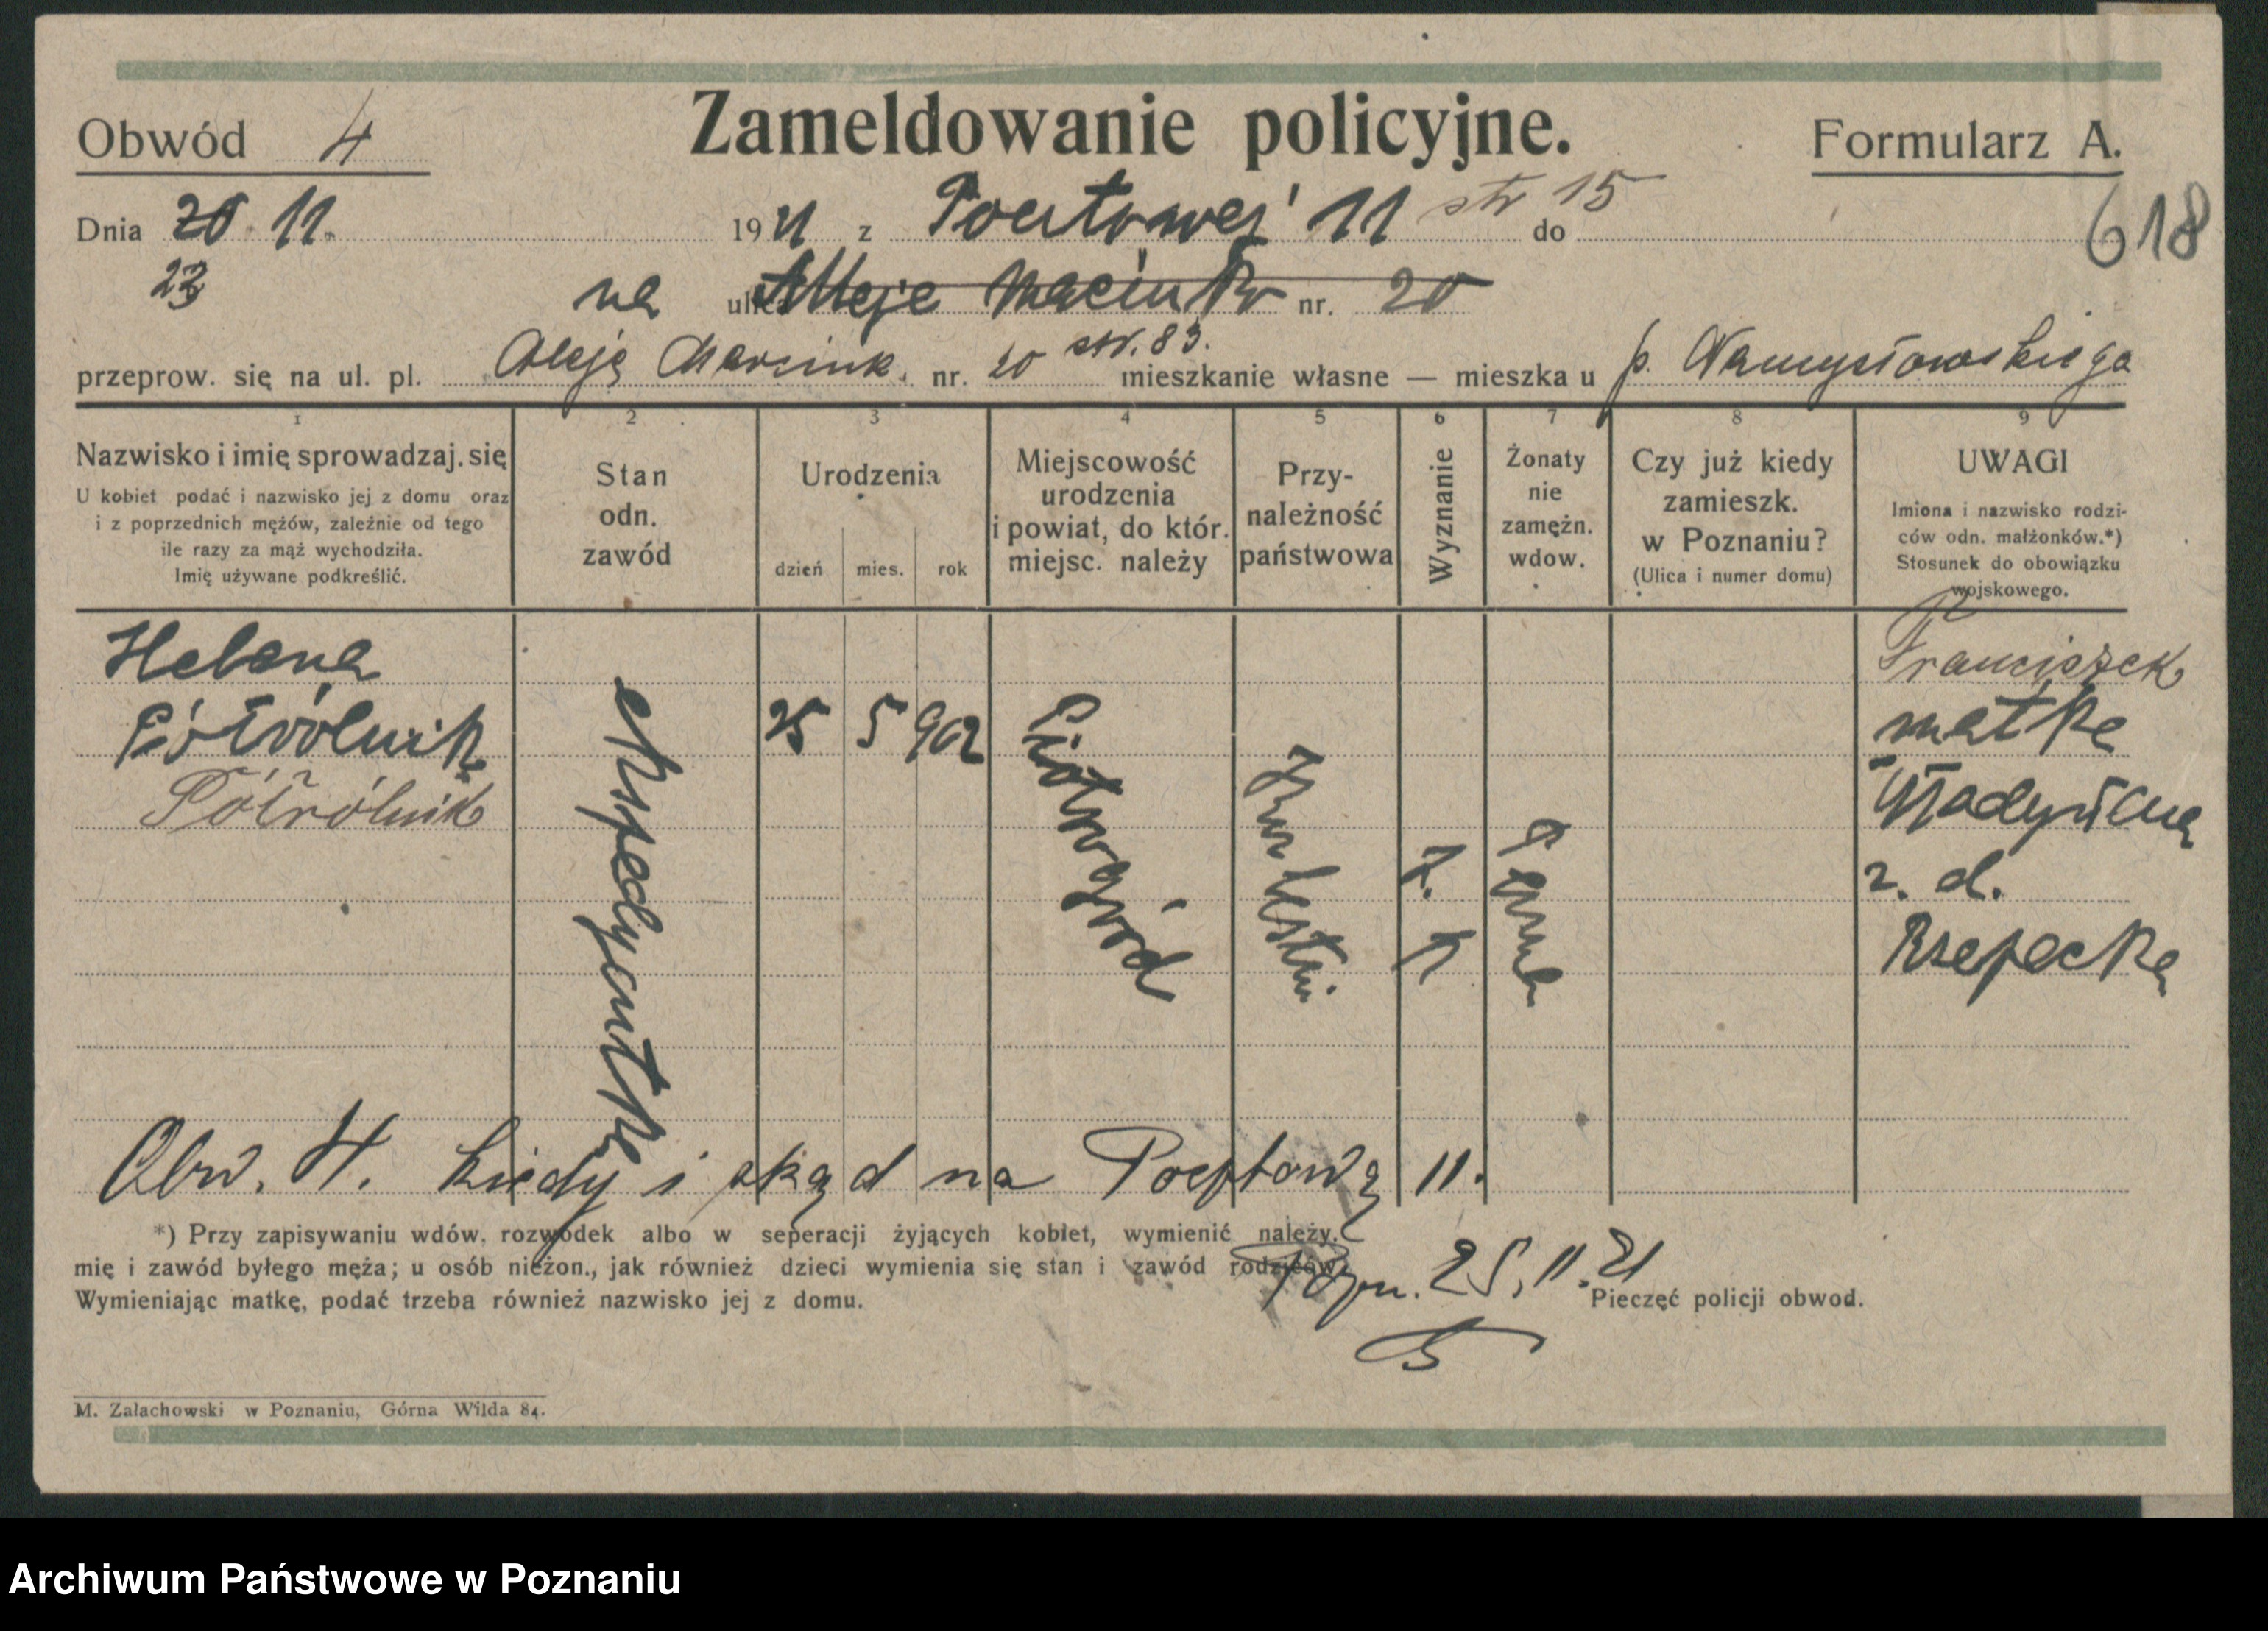 Obwód 4
Zameldowanie policyjne.
Formularz A.
Dnia 20 11. 1921 z Pocztowej 11 str 15 do
618
23
na ulica Aleje Marcink nr. 20
przeprow. się na ul. pl. Aleję Marcink. nr. 20 str. 83. mieszkanie własne — mieszka u p. Namysłowskiego
1 2 3 4 5 6 7 8 9
Nazwisko i imię sprowadzaj. się
U kobiet podać i nazwisko jej z domu oraz
i z poprzednich mężów, zależnie od tego
ile razy za mąż wychodziła.
Imię używane podkreślić.
Stan
odn.
zawód
Urodzenia
dzień mies. rok
Miejscowość
urodzenia
i powiat, do któr.
miejsc. należy
Przy-
należność
państwowa
Wyznanie
Żonaty
nie
zamężn.
wdow.
Czy już kiedy
zamieszk.
w Poznaniu?
(Ulica i numer domu)
UWAGI
Imiona i nazwisko rodzi-
ców odn. małżonków.*)
Stosunek do obowiązku
wojskowego.
Helena
Półrólnik
Półrólnik
ekspedyantka
25 5 902
Piotrogród
r. k.
panna
Franciszek
matka
Władysława
z. d.
Rzepecka
Obw. 4. kiedy i skąd na Pocztową 11.
*) Przy zapisywaniu wdów, rozwódek albo w seperacji żyjących kobiet, wymienić należy,
mię i zawód byłego męża; u osób nieżon., jak również dzieci wymienia się stan i zawód rodziców.
Wymieniając matkę, podać trzeba również nazwisko jej z domu.
Pozn. 25. 11. 21
Pieczęć policji obwod.
M. Załachowski w Poznaniu, Górna Wilda 84.
Archiwum Państwowe w Poznaniu